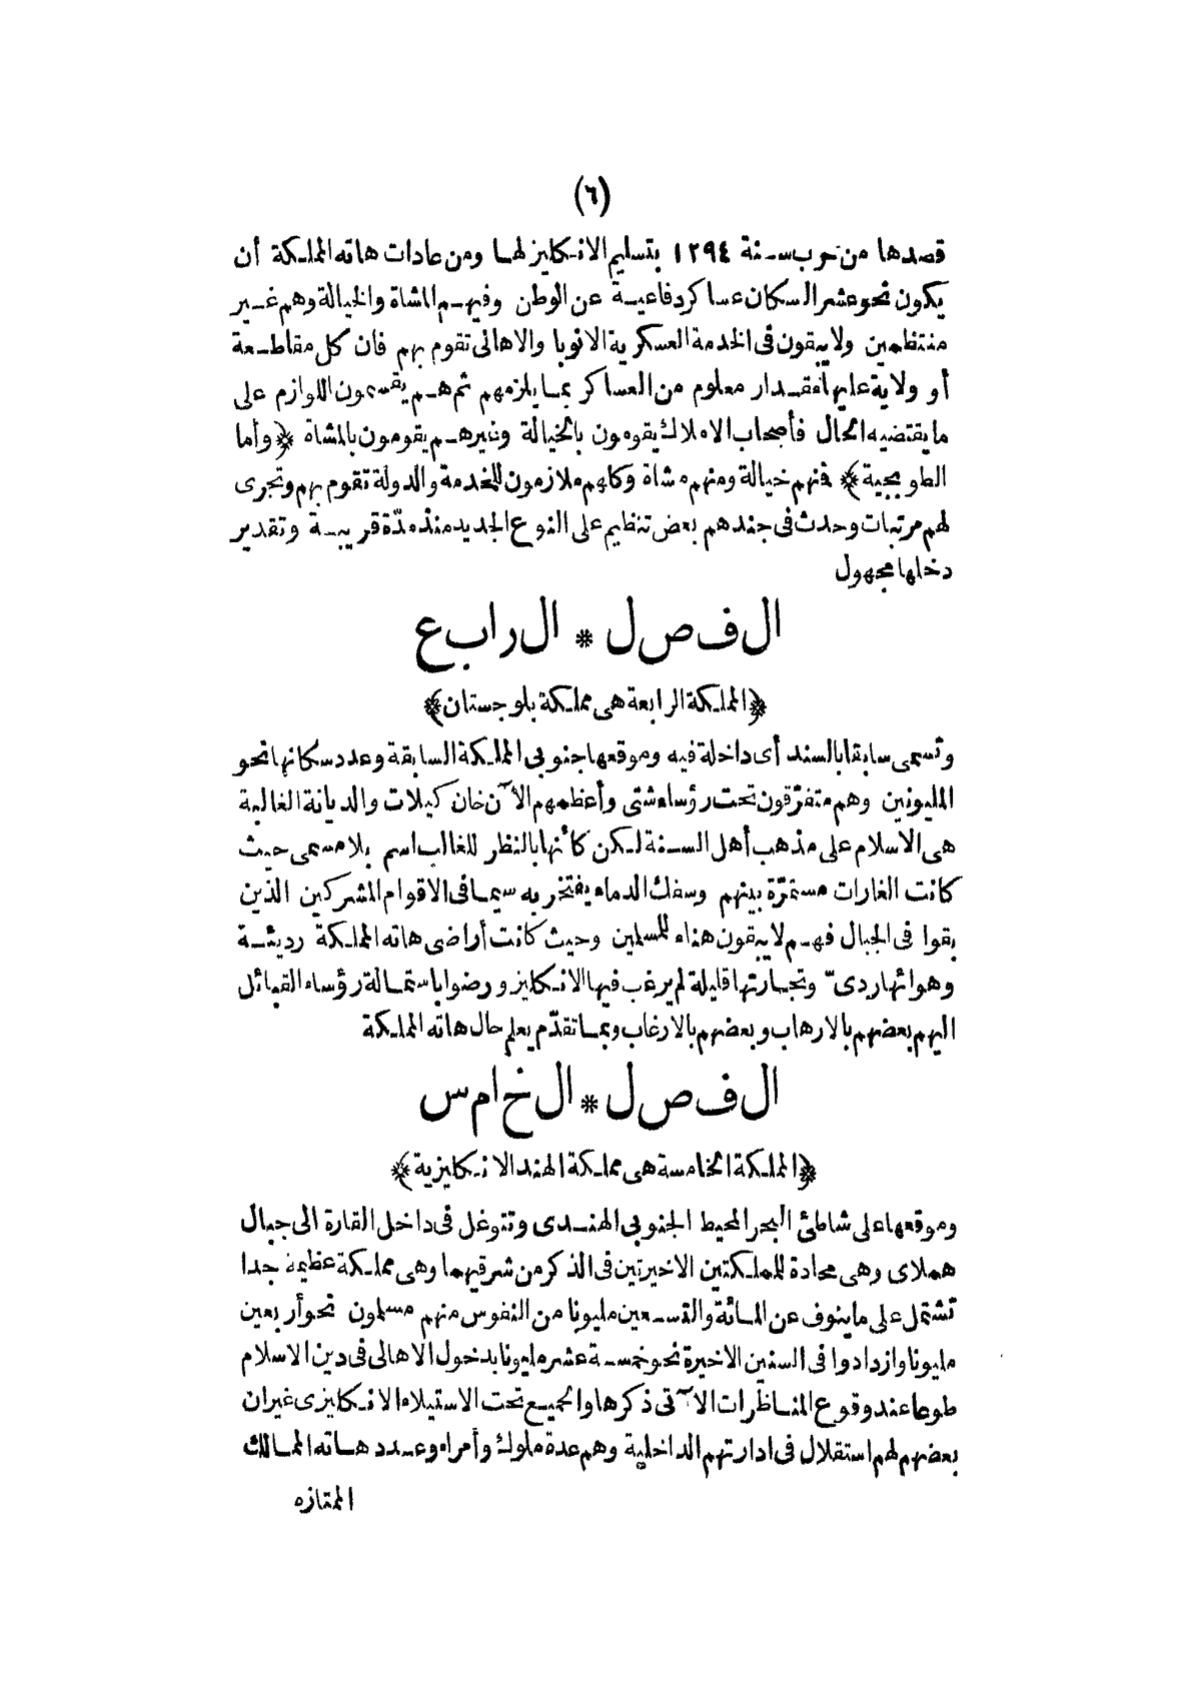 (٦)
قصدها من حرب سنة ١٢٩٤ بتسليم الانكليز لها ومن عادات هاته المملكة أن
يكون نحو عشر السكان عساكر دفاعية عن الوطن وفيهم المشاة والخيالة وهم غير
منتظمين ولا يبقون فى الخدمة العسكرية الا نوبا والاهالى تقوم بهم فان كل مقاطعة
أو ولاية عليها مقدار معلوم من العساكر بما يلزمهم ثم هم يقسمون اللوازم على
ما يقتضيه الحال فأصحاب الاملاك يقومون بالخيالة وغيرهم يقومون بالمشاة ﴿وأما
الطوبجية﴾ فنهم خيالة ومنهم مشاة وكلهم ملازمون للخدمة والدولة تقوم بهم وتجرى
لهم مرتبات وحدث فى جندهم بعض تنظيم على النوع الجديد منذ مدّة قريبة وتقدير
دخلها مجهول
الفصل * الرابع
﴿المملكة الرابعة هى مملكة بلوجستان﴾
وتسمى سابقا بالسند أى داخلة فيه وموقعها جنوبى المملكة السابقة وعدد سكانها نحو
المليونين وهم متفرّقون تحت رؤساء شتى وأعظمهم الآن خان كيلات والديانة الغالبة
هى الاسلام على مذهب أهل السنة لكن كأنها بالنظر للغالب اسم بلا مسمى حيث
كانت الغارات مستمرّة بينهم وسفك الدماء يفتخر به سيما فى الاقوام المشركين الذين
بقوا فى الجبال فهم لا يبقون هناء للمسلمين وحيث كانت أراضى هاته المملكة رديئة
وهوائها ردىّ وتجارتها قليلة لم يرغب فيها الانكليز ورضوا باستمالة رؤساء القبائل
اليهم بعضهم بالارهاب وبعضهم بالارغاب وبما تقدّم يعلم حال هاته المملكة
الفصل * الخامس
﴿المملكة الخامسة هى مملكة الهند الانكليزية﴾
وموقعها على شاطئ البحر المحيط الجنوبى الهندى وتتوغل فى داخل القارة الى جبال
هملاى وهى محادة للمملكتين الاخيرتين فى الذكر من شرقيهما وهى مملكة عظيمة جدا
تشتمل على ما ينوف عن المائة والتسعين مليونا من النفوس منهم مسلمون نحو أربعين
مليونا وازدادوا فى السنين الاخيرة نحو خمسة عشر مليونا بدخول الاهالى فى دين الاسلام
طوعا عند وقوع المناظرات الآتى ذكرها والجميع تحت الاستيلاء الانكليزى غير ان
بعضهم لهم استقلال فى ادارتهم الداخلية وهم عدة ملوك وأمراء وعدد هاته الممالك
الممتازه